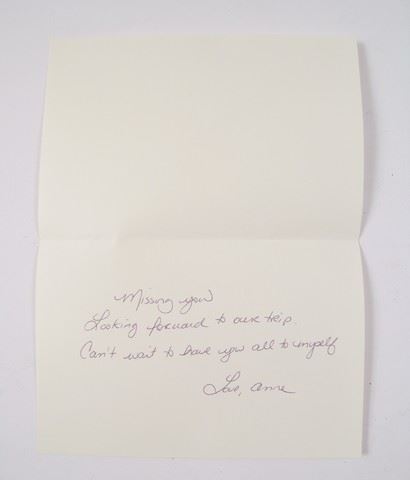 Missing you
Looking forward to our trip.
Can't wait to have you all to myself
Love, Anne